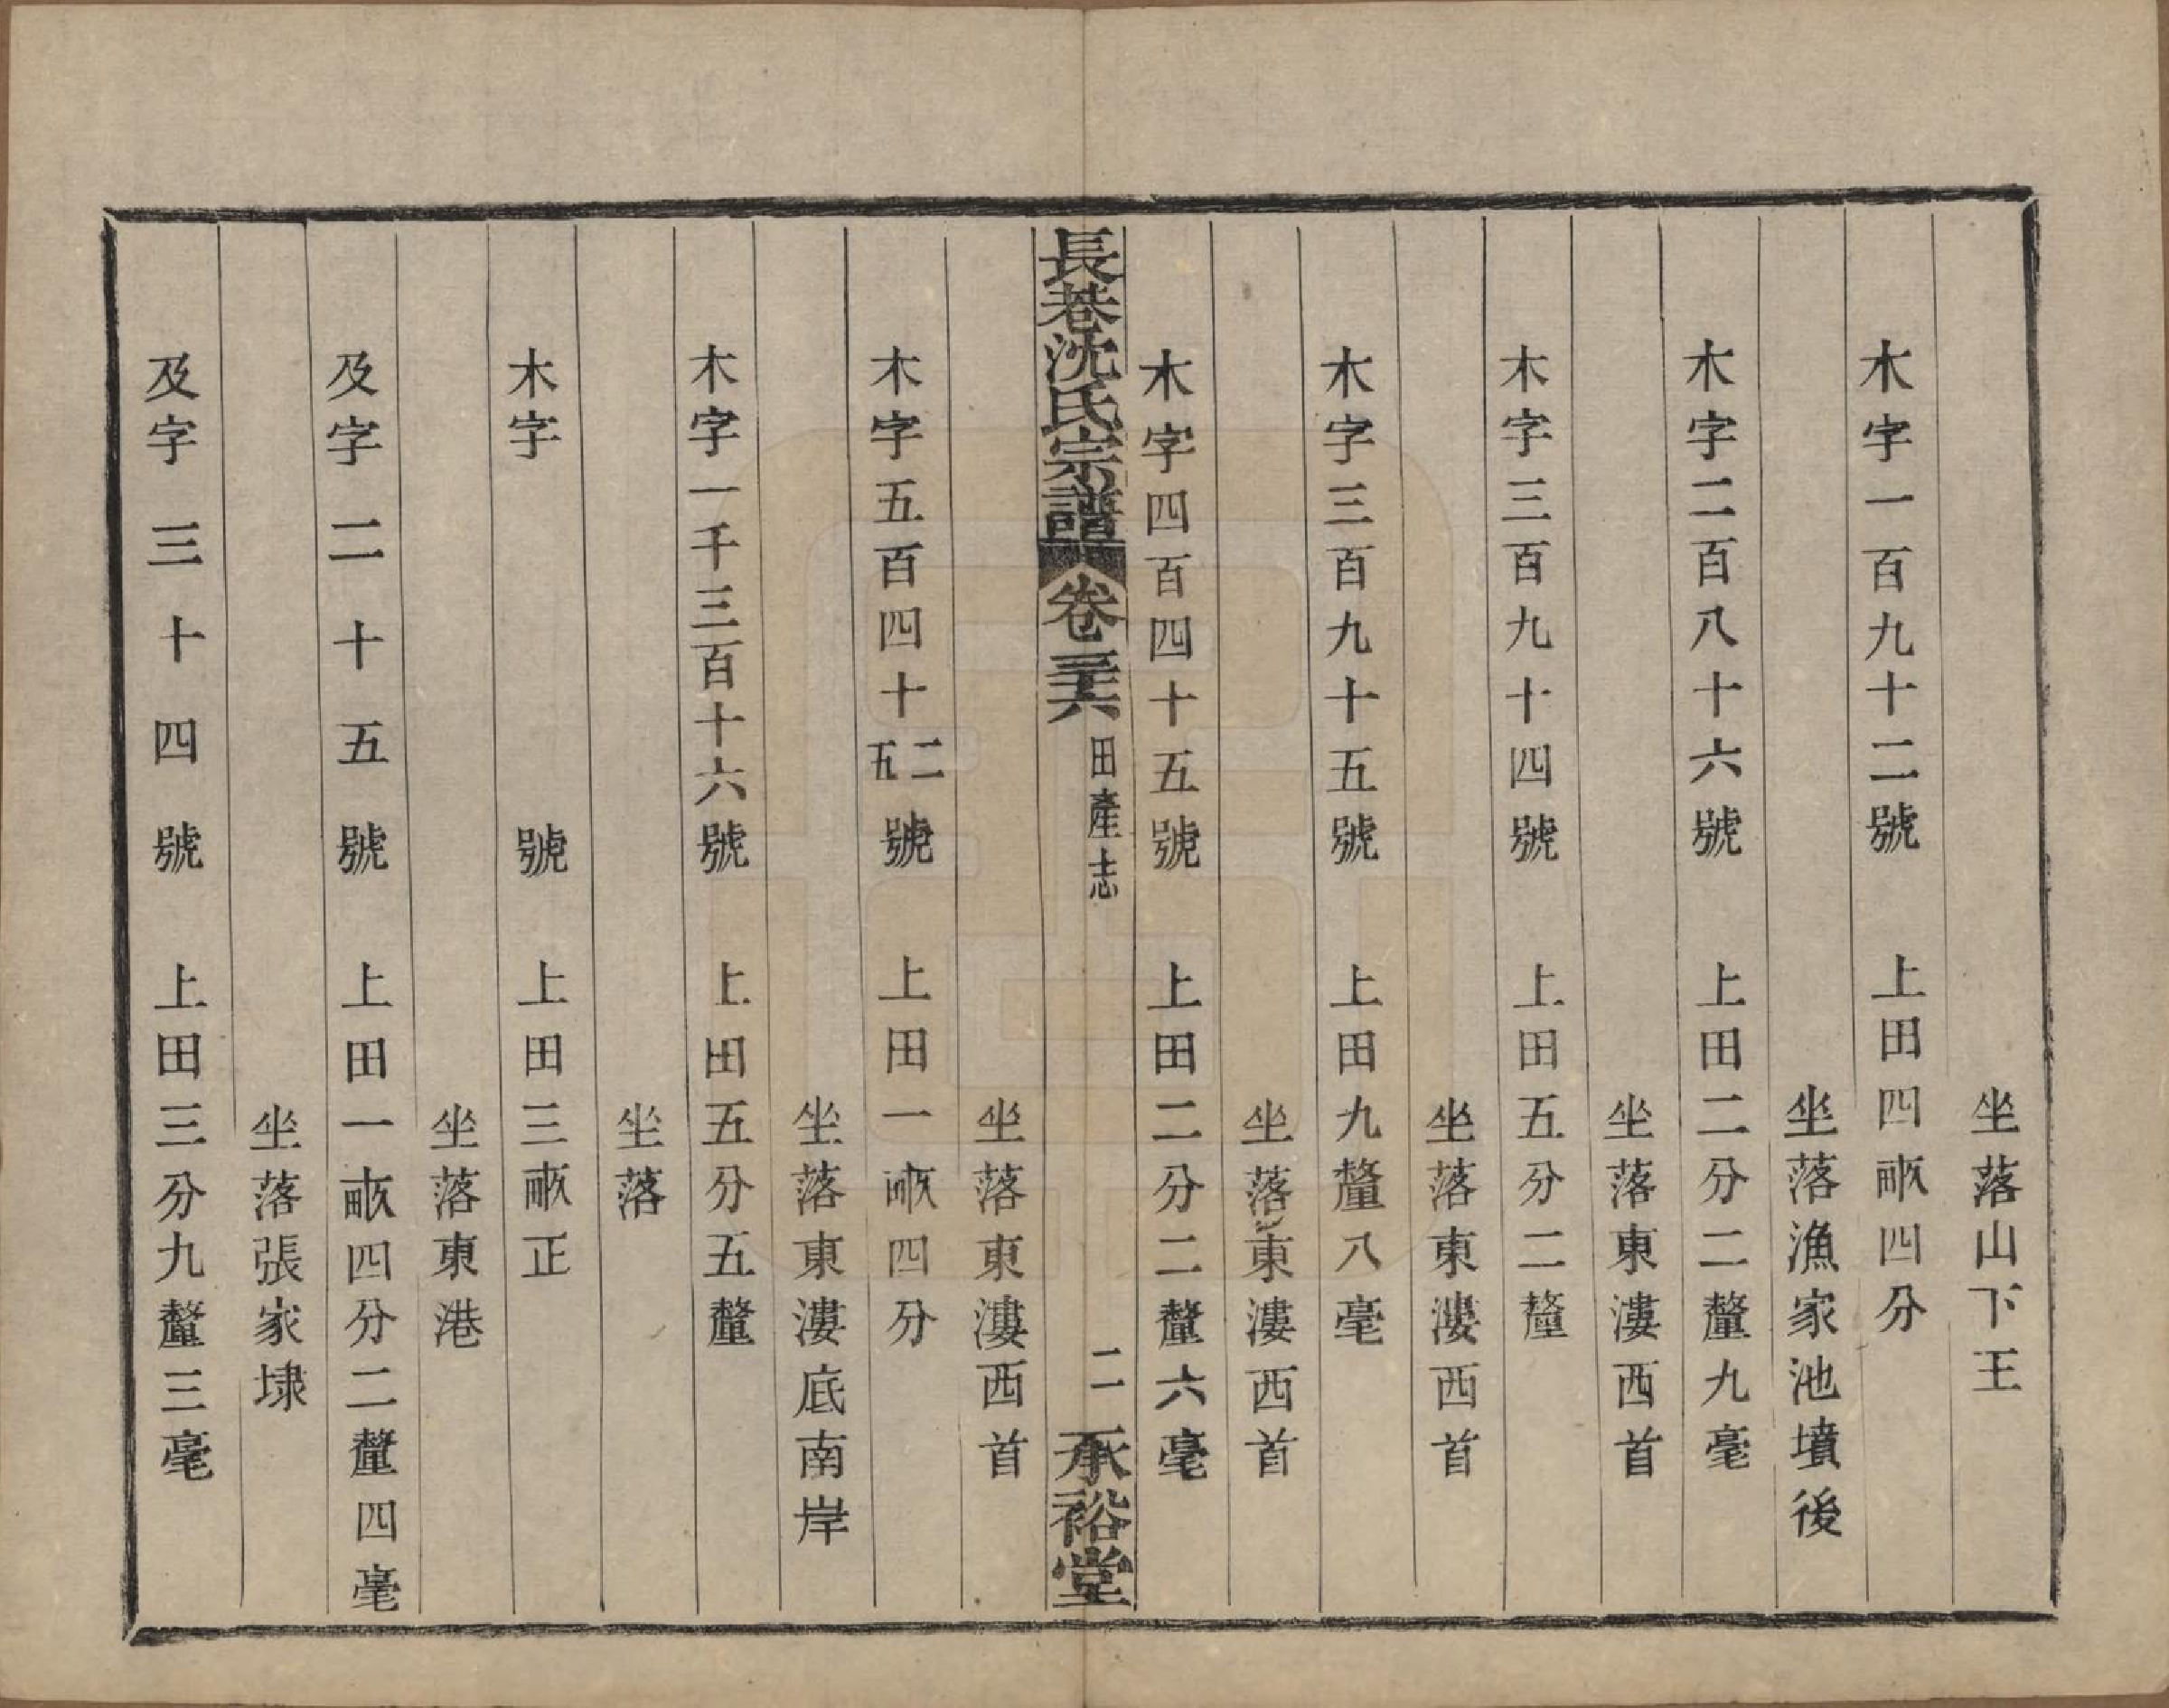 坐落山下王
木字一百九十二號　上田四畝四分
坐落漁家池墳後
木字二百八十六號　上田二分二釐九毫
坐落東漊西首
木字三百九十四號　上田五分二釐
坐落東漊西首
木字三百九十五號　上田九釐八毫
坐落東漊西首
木字四百四十五號　上田二分二釐六毫
長巷沈氏宗譜　卷三十六　田產志　二　承裕堂
坐落東漊西首
木字五百四十二五號　上田一畝四分
坐落東漊底南岸
木字一千三百十六號　上田五分五釐
坐落
木字　號　上田三畝正
坐落東港
及字二十五號　上田一畝四分二釐四毫
坐落張家埭
及字三十四號　上田三分九釐三毫